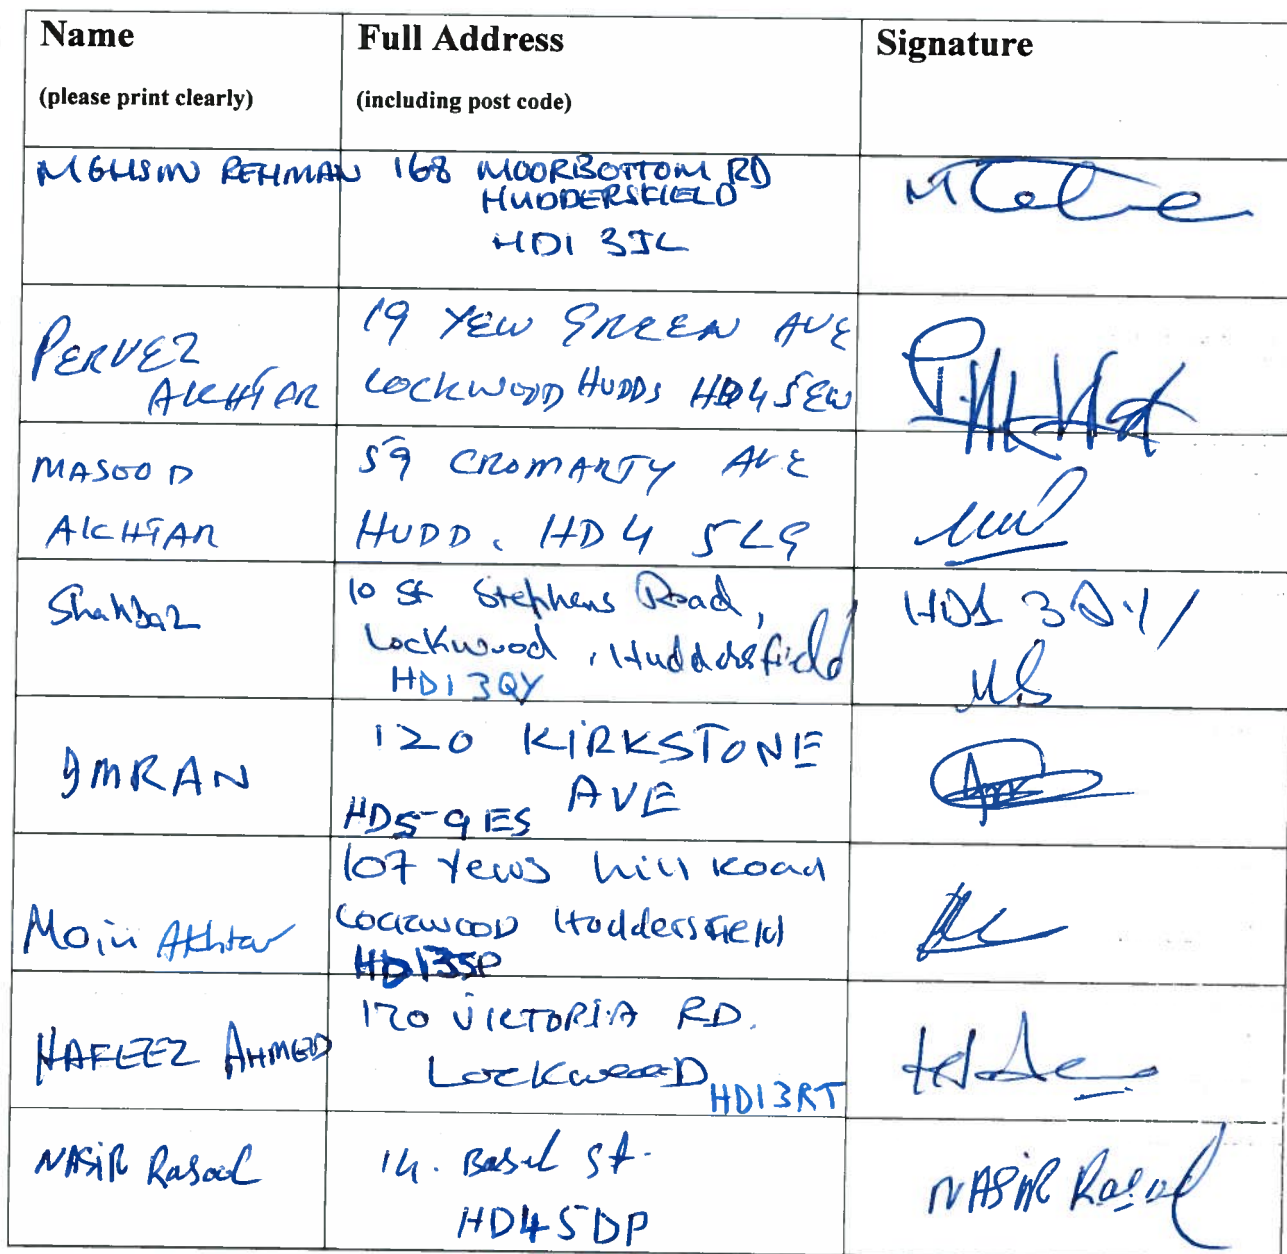 Name
(please print clearly)
Full Address
(including post code)
Signature
MOHSIN REHMAN
168 MOORBOTTOM RD
HUDDERSFIELD
HD1 3JL
PERVEZ
AKHTAR
19 YEW GREEN AVE
LOCKWOOD HUDDS HD4 5EW
MASOOD
AKHTAR
59 CROMARTY AVE
HUDD. HD4 5LG
Shahbaz
10 St Stephens Road,
Lockwood, Huddersfield
HD1 3QY
HD1 3QY
MS
IMRAN
120 KIRKSTONE
AVE
HD5-9ES
Moin Akhtar
107 Yews hill Road
LOCKWOOD Huddersfield
HD13SP
HAFEEZ AHMED
120 VICTORIA RD.
LOCKWOOD
HD13RT
NASIR Rasool
14. Basil St.
HD45DP
NASIR Rasool